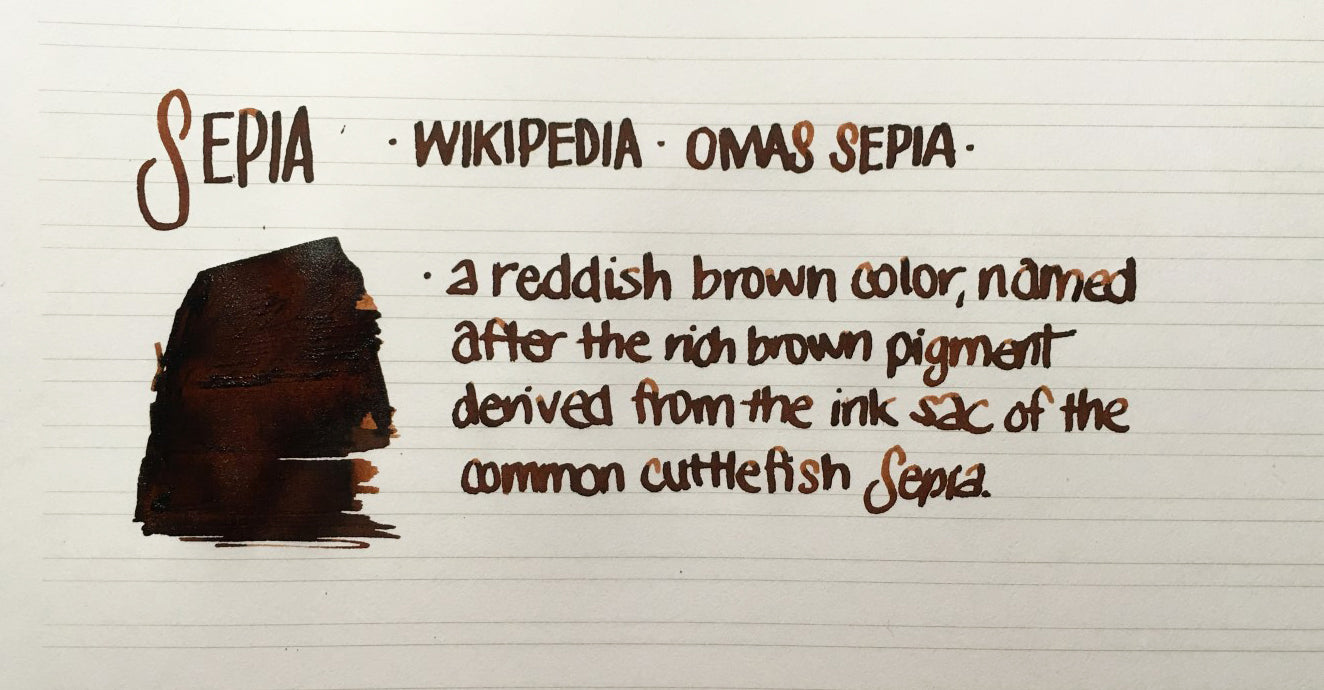 SEPIA · WIKIPEDIA · OMAS SEPIA ·
· a reddish brown color, named
after the rich brown pigment
derived from the ink sac of the
common cuttlefish Sepia.